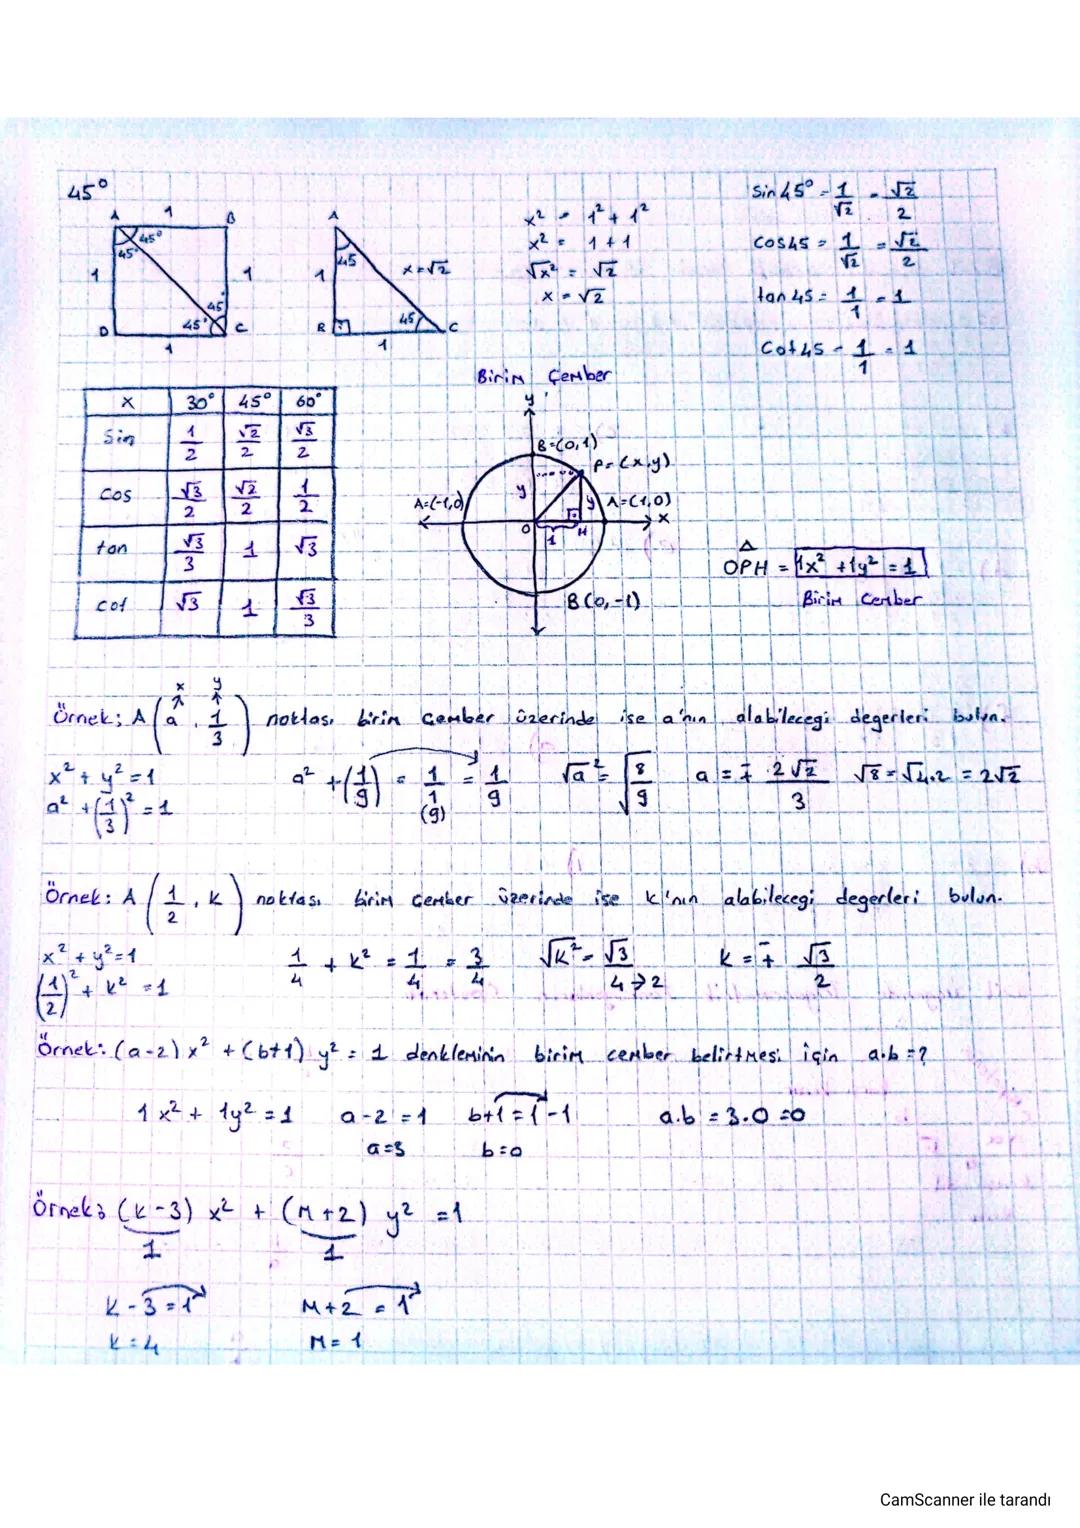 45°
A 1 B
45°
45°
1 1
45
D 45° C
1
A
45
1 x=√2
B 45 C
1
x² = 1² + 1²
x² = 1 + 1
√x² = √2
x = √2
Sin 45° = 1/√2 = √2/2
Cos45 = 1/√2 = √2/2
tan 45 = 1/1 = 1
Cot45 = 1/1 = 1
x 30° 45° 60°
Sin 1/2 √2/2 √3/2
cos √3/2 √2/2 1/2
tan √3/3 1 √3
cot √3 1 √3/3
Birim Çember
y
B=(0,1)
P=(x,y)
A=(-1,0) y y A=(1,0)
O 1 H x
B(0,-1)
OPH = 1x² + 1y² = 1
Birim Cember
x y
Örnek; A(a, 1/3) noktası birim Çember üzerinde ise a'nın alabilecegi degerleri bulun.
x² + y² = 1
a² + (1/3)² = 1
a² + (1/9) = 1/1 = 1/9
(9)
√a² = √8/9
a = ∓ 2√2/3
√8 = √4.2 = 2√2
Örnek: A(1/2, k) noktası birim Çember üzerinde ise k'nın alabilecegi degerleri bulun.
x² + y² = 1
(1/2)² + k² = 1
1/4 + k² = 1/4 = 3/4
√k² = √3/4→2
k = ∓ √3/2
Örnek: (a-2) x² + (b+1) y² = 1 denkleminin birim cember belirtmesi için a.b = ?
1x² + 1y² = 1 a-2 = 1 b+1 = 1-1 a.b = 3.0 = 0
a=3 b=0
Örnek: (k-3) x² + (M+2) y² = 1
1 1
k-3 = 1 M+2 = 1
k = 4 M = 1
CamScanner ile tarandı